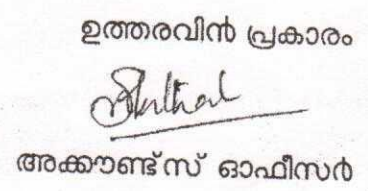 ഉത്തരവിൻ പ്രകാരം
അക്കൗണ്ട്സ് ഓഫീസർ